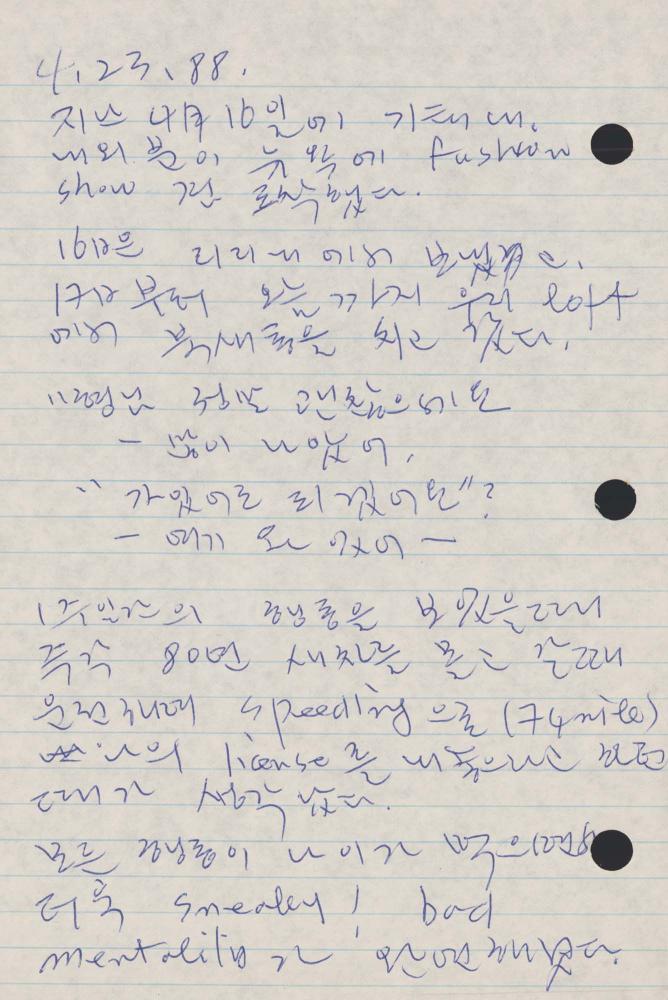 4, 23, 88.
지난 4月 16일에 기태 내.
내외분이 뉴욕에 fashion
show 겸 도착했다.
16日은 리리네에서 보냈고,
17日부터 오늘까지 우리 loft
에서 북새통을 치고 갔다.
"형님 정말 괜찮으세요
- 많이 나았어.
"가있어도 되겠어요"?
- 여기 와 있어 -
1주일간의 행동을 보았을때
즉각 80년 새차를 몰고 갈때
운전하며 speeding 으로 (74 mile)
나의 license 를 내놓으라고 하던
때가 생각났다.
모든 행동이 나이가 먹으면
더욱 sneaky! bad
mentality 가 완연해졌다.